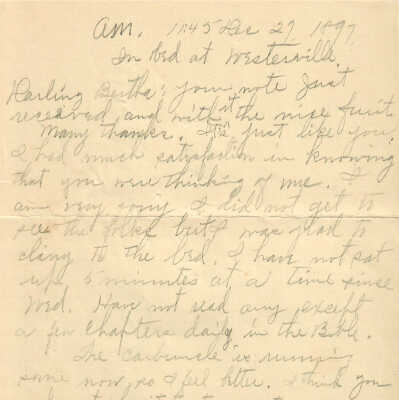 A.M. 11:45 Dec 27 1897
In bed at Westerville.
Darling Bertha; your note just
received and with it the nice fruit
Many thanks. It's just like you.
I had much satisfaction in knowing
that you were thinking of me. I
am very sorry I did not get to
see the folks but I was glad to
cling to the bed. I have not sat
up 5 minutes at a time since
Wed. Have not read any except
a few chapters daily in the Bible.
The carbuncle is running
some now, so I feel better. I think you